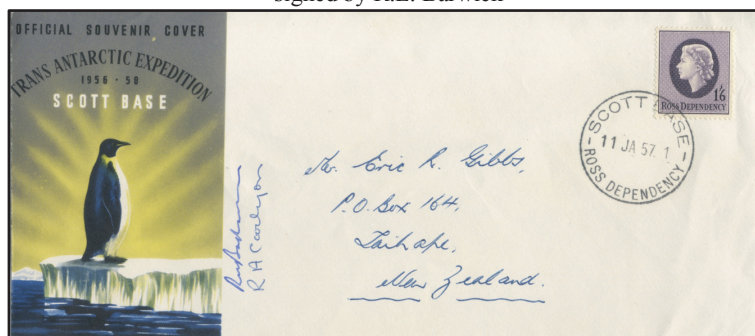 signed by R.E. Barwick
OFFICIAL SOUVENIR COVER
TRANS ANTARCTIC EXPEDITION
1956 - 58
SCOTT BASE
1/6
ROSS DEPENDENCY
SCOTT BASE
11 JA 57. 1
ROSS DEPENDENCY
Mr. Eric R. Gibbs,
P.O. Box 164,
Taihape,
New Zealand.